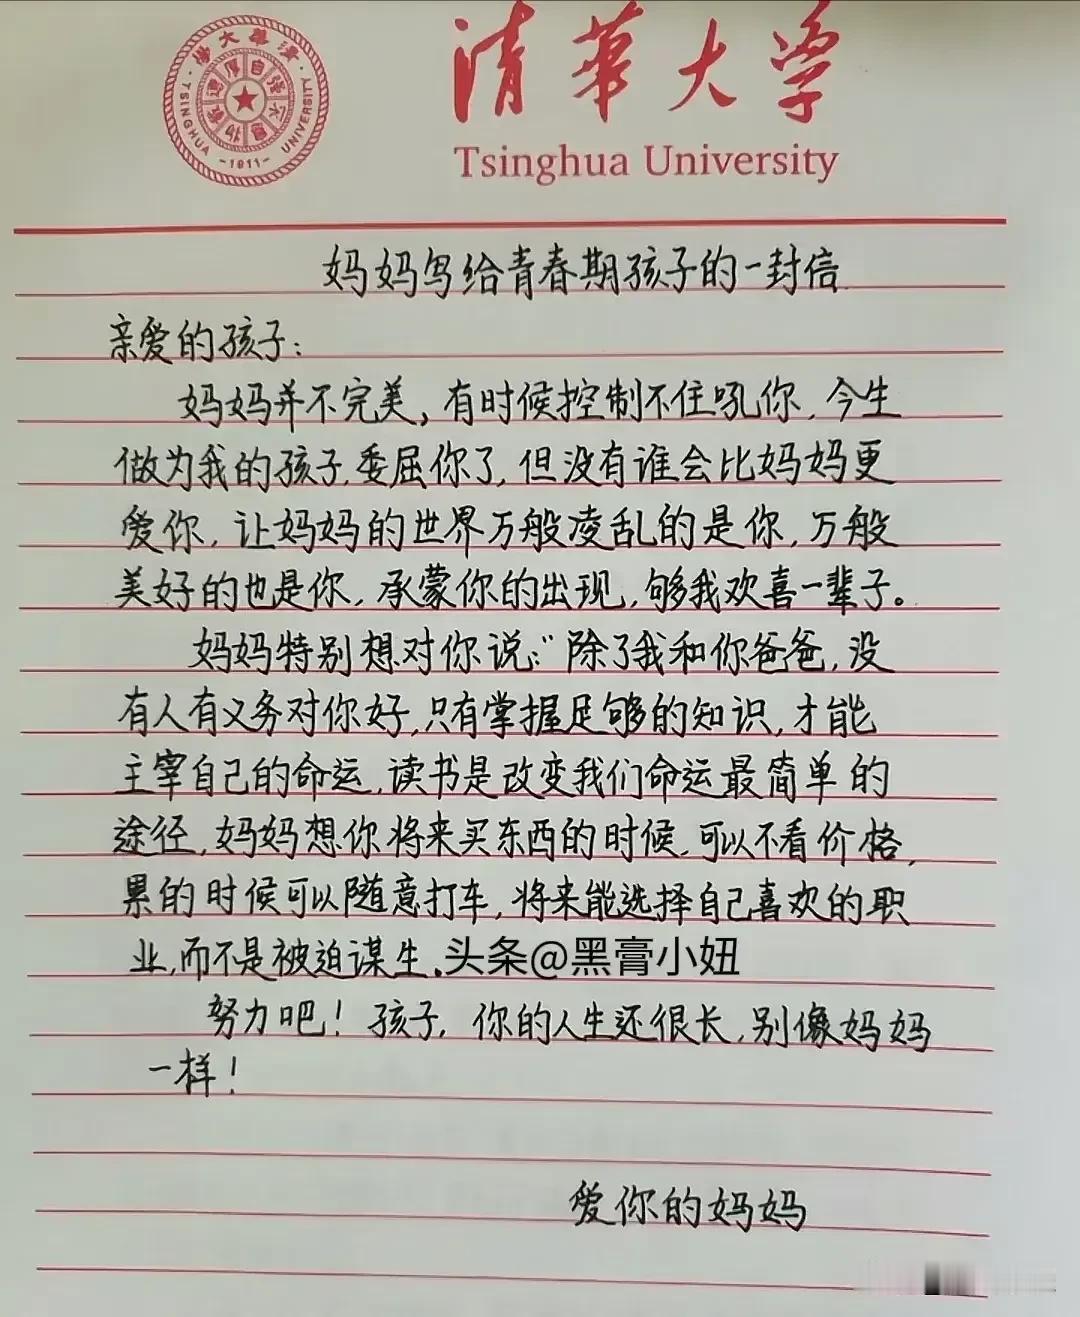 清華大学
Tsinghua University
清華大學
自强不息
厚德載物
TSINGHUA UNIVERSITY
-1911-
妈妈写给青春期孩子的一封信
亲爱的孩子:
妈妈并不完美,有时候控制不住吼你,今生
做为我的孩子,委屈你了,但没有谁会比妈妈更
爱你,让妈妈的世界万般凌乱的是你,万般
美好的也是你,承蒙你的出现,够我欢喜一辈子。
妈妈特别想对你说:“除了我和你爸爸,没
有人有义务对你好,只有掌握足够的知识,才能
主宰自己的命运,读书是改变我们命运最简单的
途径,妈妈想你将来买东西的时候,可以不看价格,
累的时候可以随意打车,将来能选择自己喜欢的职
业,而不是被迫谋生.头条@黑膏小妞
努力吧!孩子,你的人生还很长,别像妈妈
一样!
爱你的妈妈